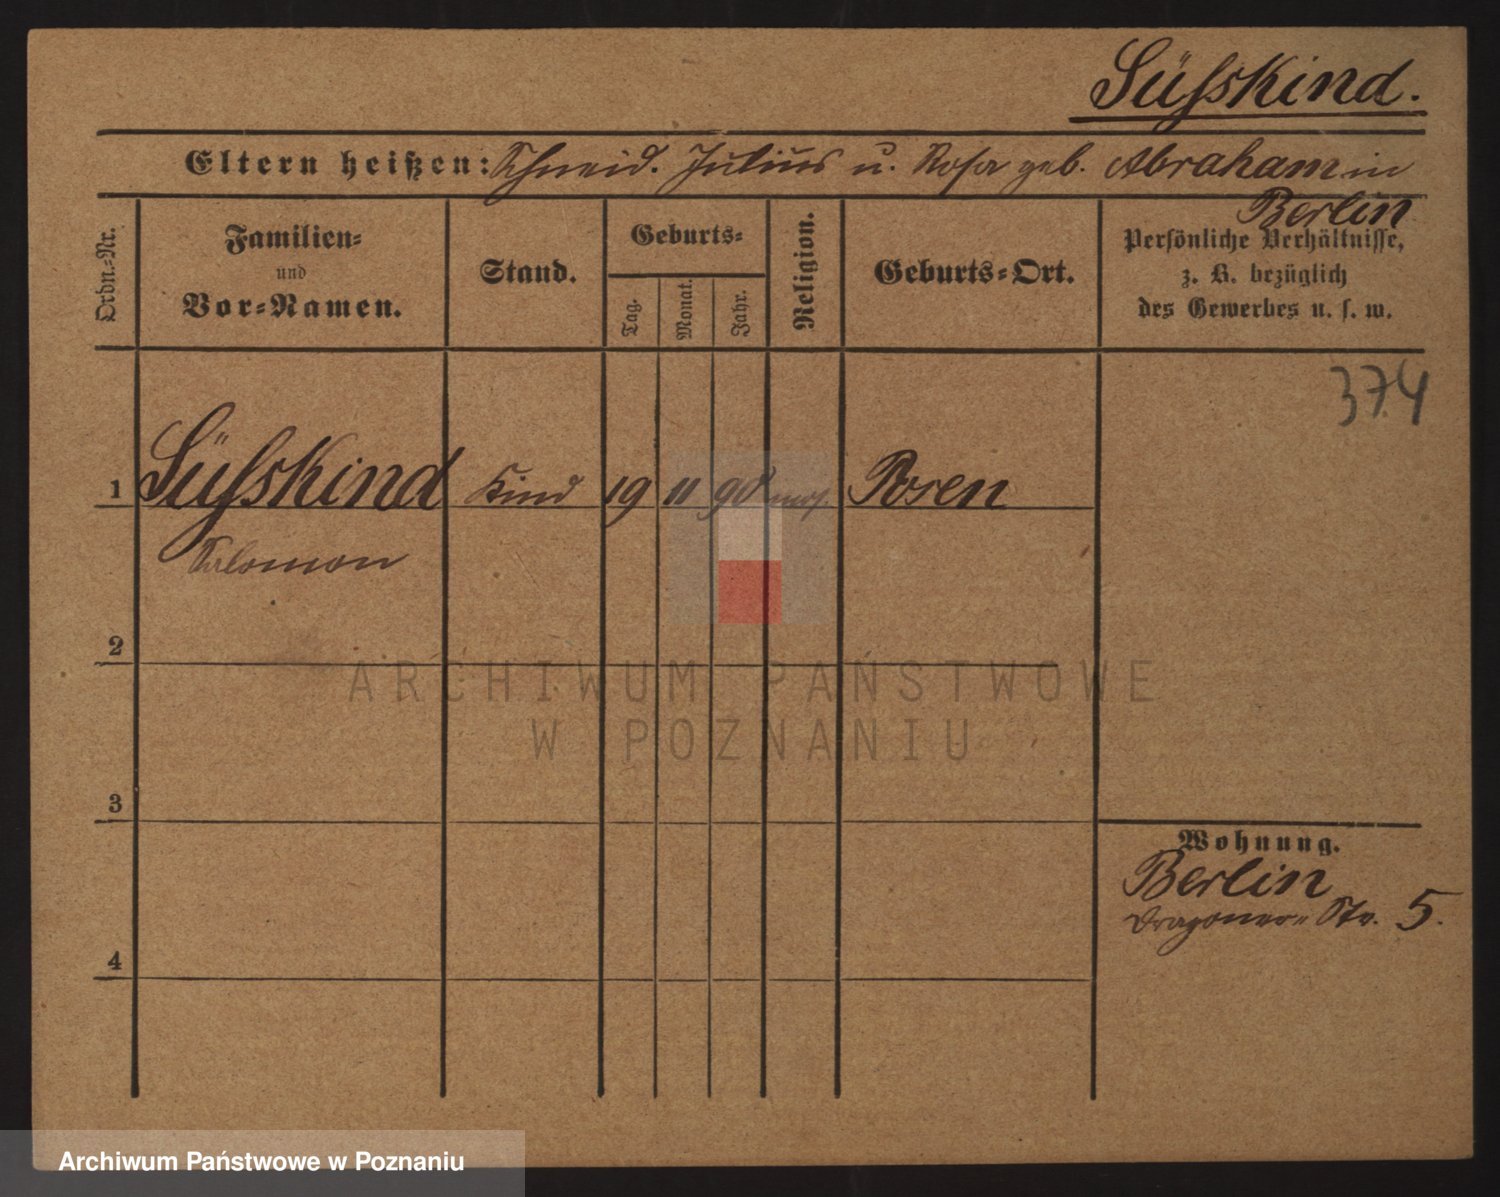 Süßskind.
Eltern heißen: Schneid. Julius u. Rosa geb. Abraham in
Berlin
Ordn.-Nr.
Familien-
und
Vor-Namen.
Stand.
Geburts-
Tag.
Monat.
Jahr.
Religion.
Geburts-Ort.
Persönliche Verhältnisse,
z. B. bezüglich
des Gewerbes u. s. w.
374
1 Süßskind Kind 19 11 90 mos. Posen
Salomon
2
ARCHIWUM PAŃSTWOWE
W POZNANIU
3
Wohnung.
Berlin
Dragoner-Str. 5.
4
Archiwum Państwowe w Poznaniu